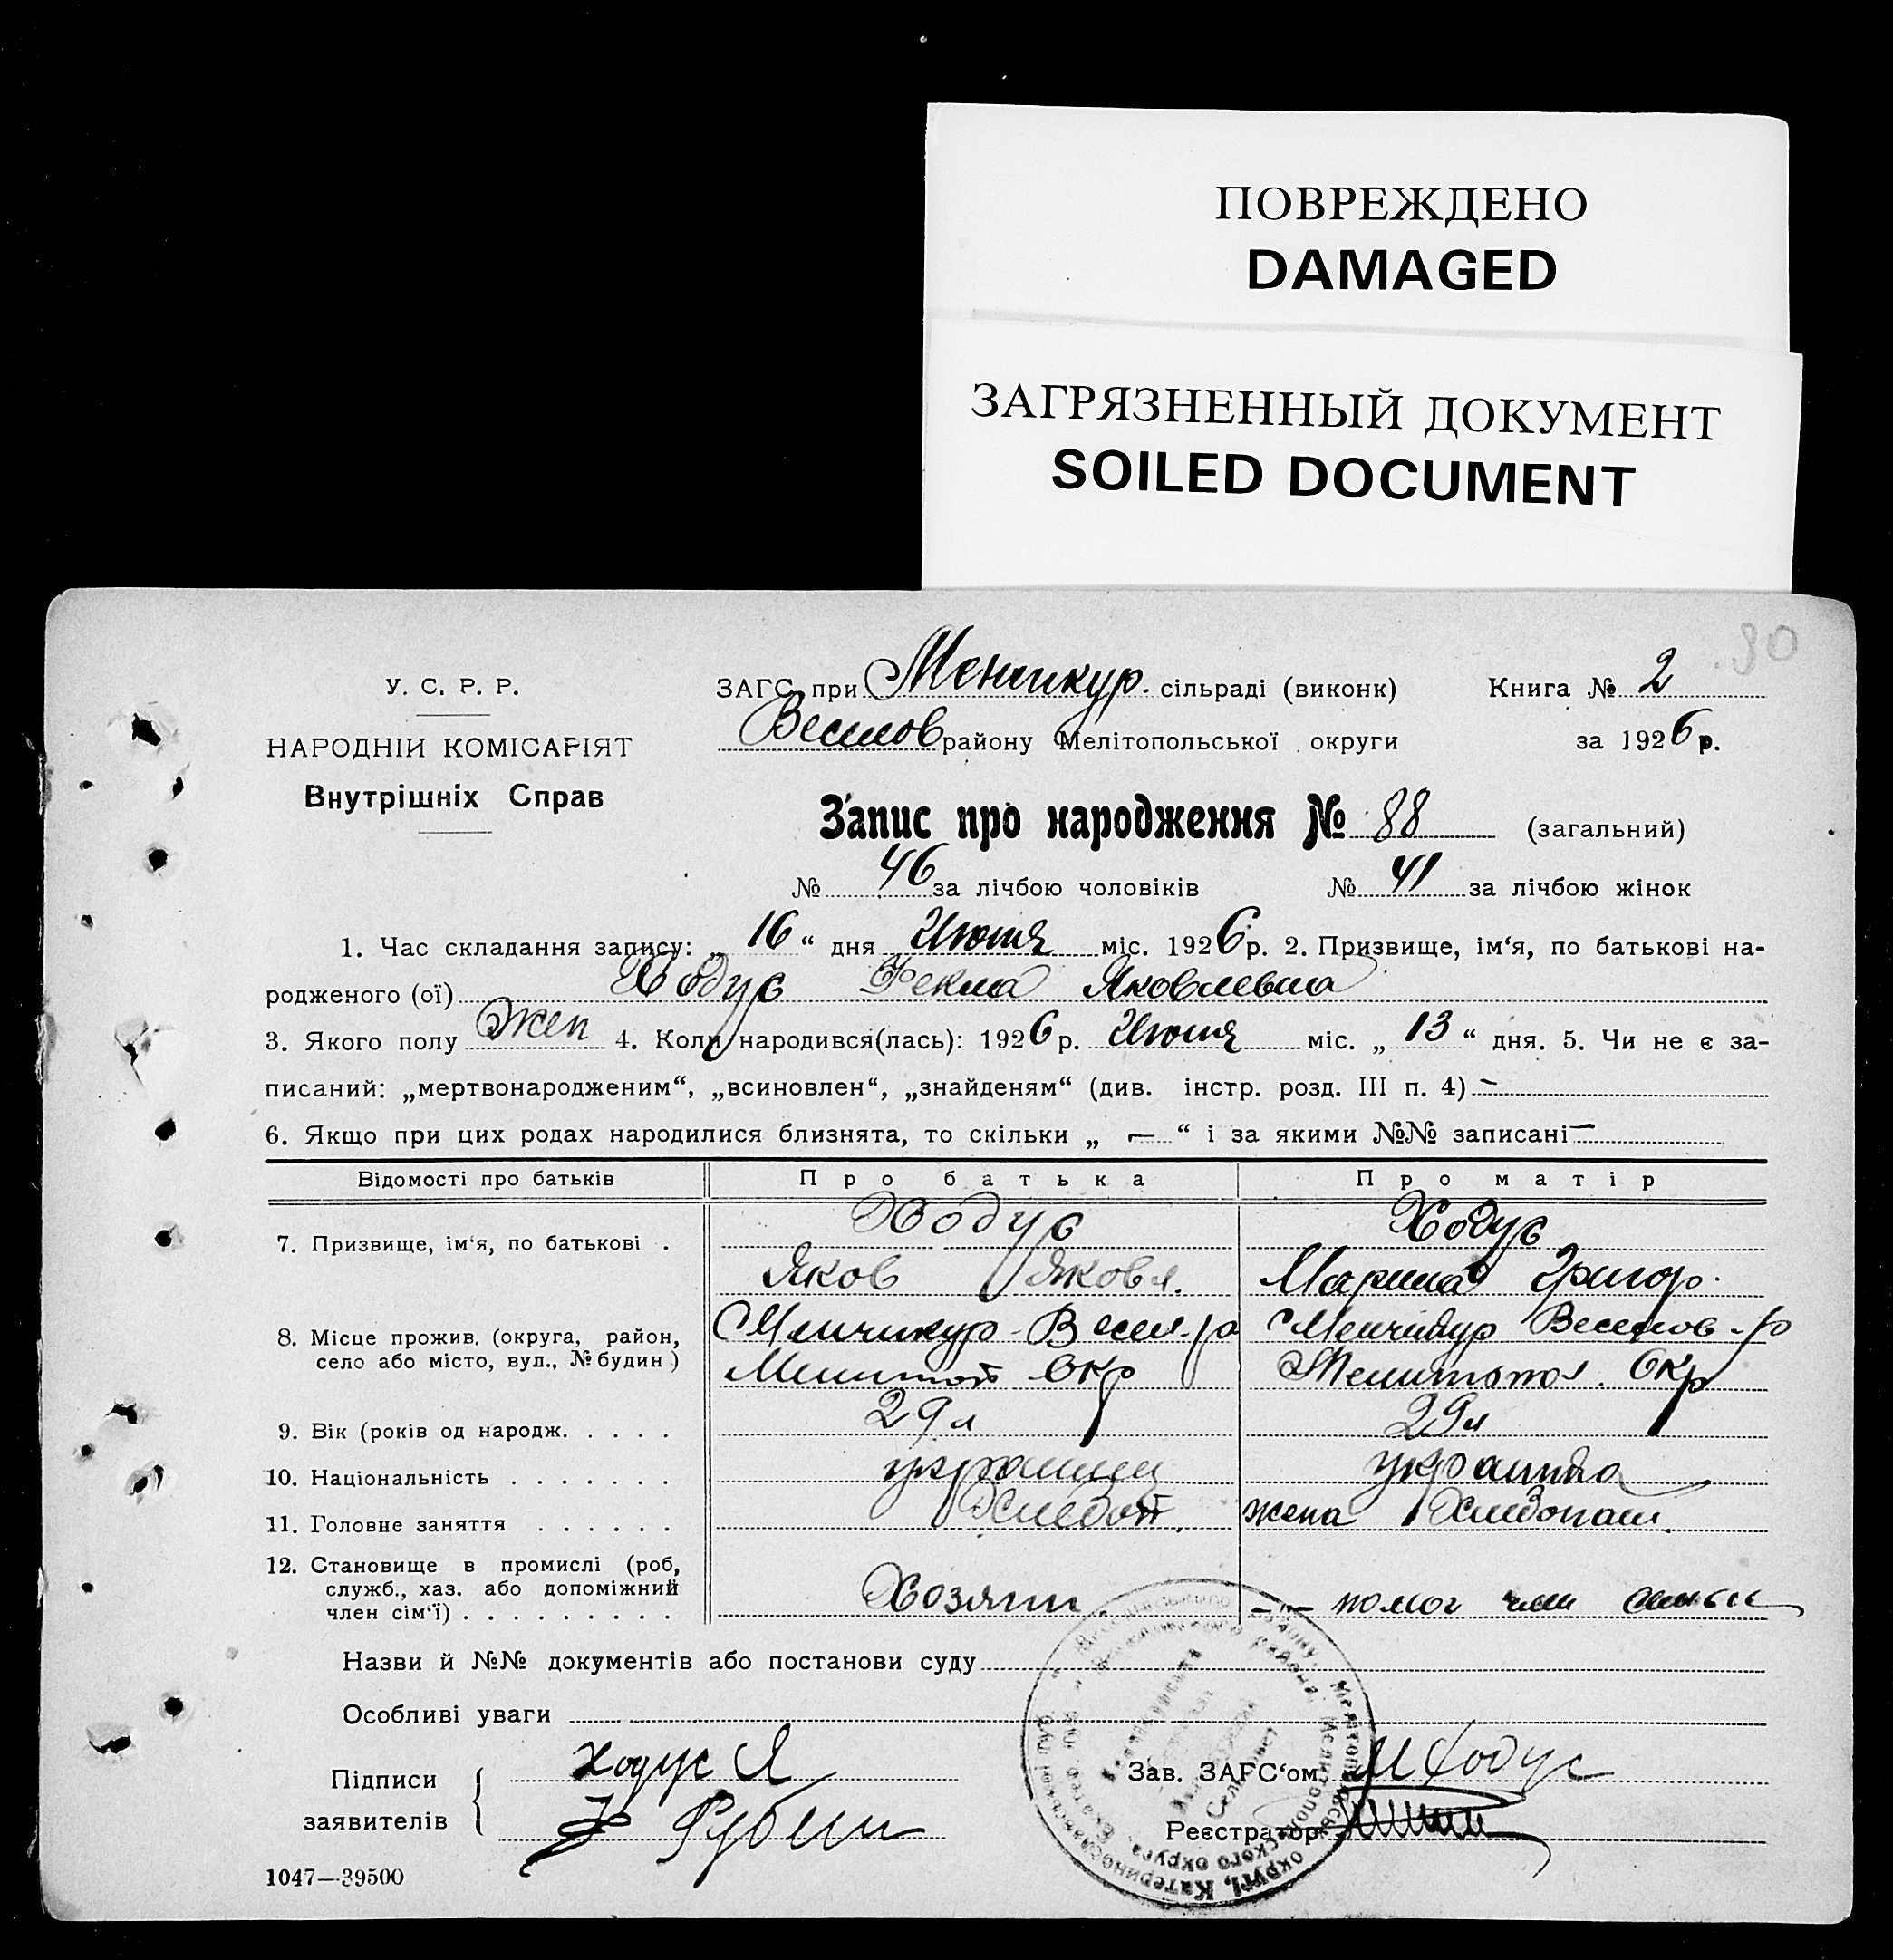 ПОВРЕЖДЕНО
DAMAGED
ЗАГРЯЗНЕННЫЙ ДОКУМЕНТ
SOILED DOCUMENT
80
У. С. Р. Р.
НАРОДНІЙ КОМІСАРІЯТ
Внутрішніх Справ
ЗАГС при Менчикур. сільраді (виконк) Книга № 2
Веселов району Мелітопольської округи за 1926 р.
Запис про народження № 88 (загальний)
№ 46 за лічбою чоловіків № 41 за лічбою жінок
1. Час складання запису: „16“ дня Июня міс. 1926 р. 2. Призвище, ім‘я, по батькові на-
родженого (ої) Ходус Фекла Яковлевна
3. Якого полу Жен 4. Коли народився(лась): 1926 р. Июня міс. „13“ дня. 5. Чи не є за-
писаний: „мертвонародженим“, „всиновлен“, „знайденям“ (див. інстр. розд. III п. 4) —
6. Якщо при цих родах народилися близнята, то скільки „ — “ і за якими №№ записані —
Відомості про батьків Про батька Про матір
7. Призвище, ім‘я, по батькові . Ходус Ходус
Яков Яковл. Марина Григор.
8. Місце прожив. (округа, район, Менчикур Весел. р Менчикур Веселов. р
село або місто, вул., № будин) Мелитоп Окр Мелитопол. Окр
9. Вік (років од народж. . . . . 29 л 29 л
10. Національність . . . . . . . украинец украинка
11. Головне заняття . . . . . . Хлебоп. жена Хлебопаш.
12. Становище в промислі (роб,
служб., хаз. або допоміжний
член сім‘ї) . . . . . . . . . Хозяин — помог член семьи
Назви й №№ документів або постанови суду
Особливі уваги
Підписи Ходус Я Зав. ЗАГС‘ом М Ходус
заявителів Реєстратор
1047—39500